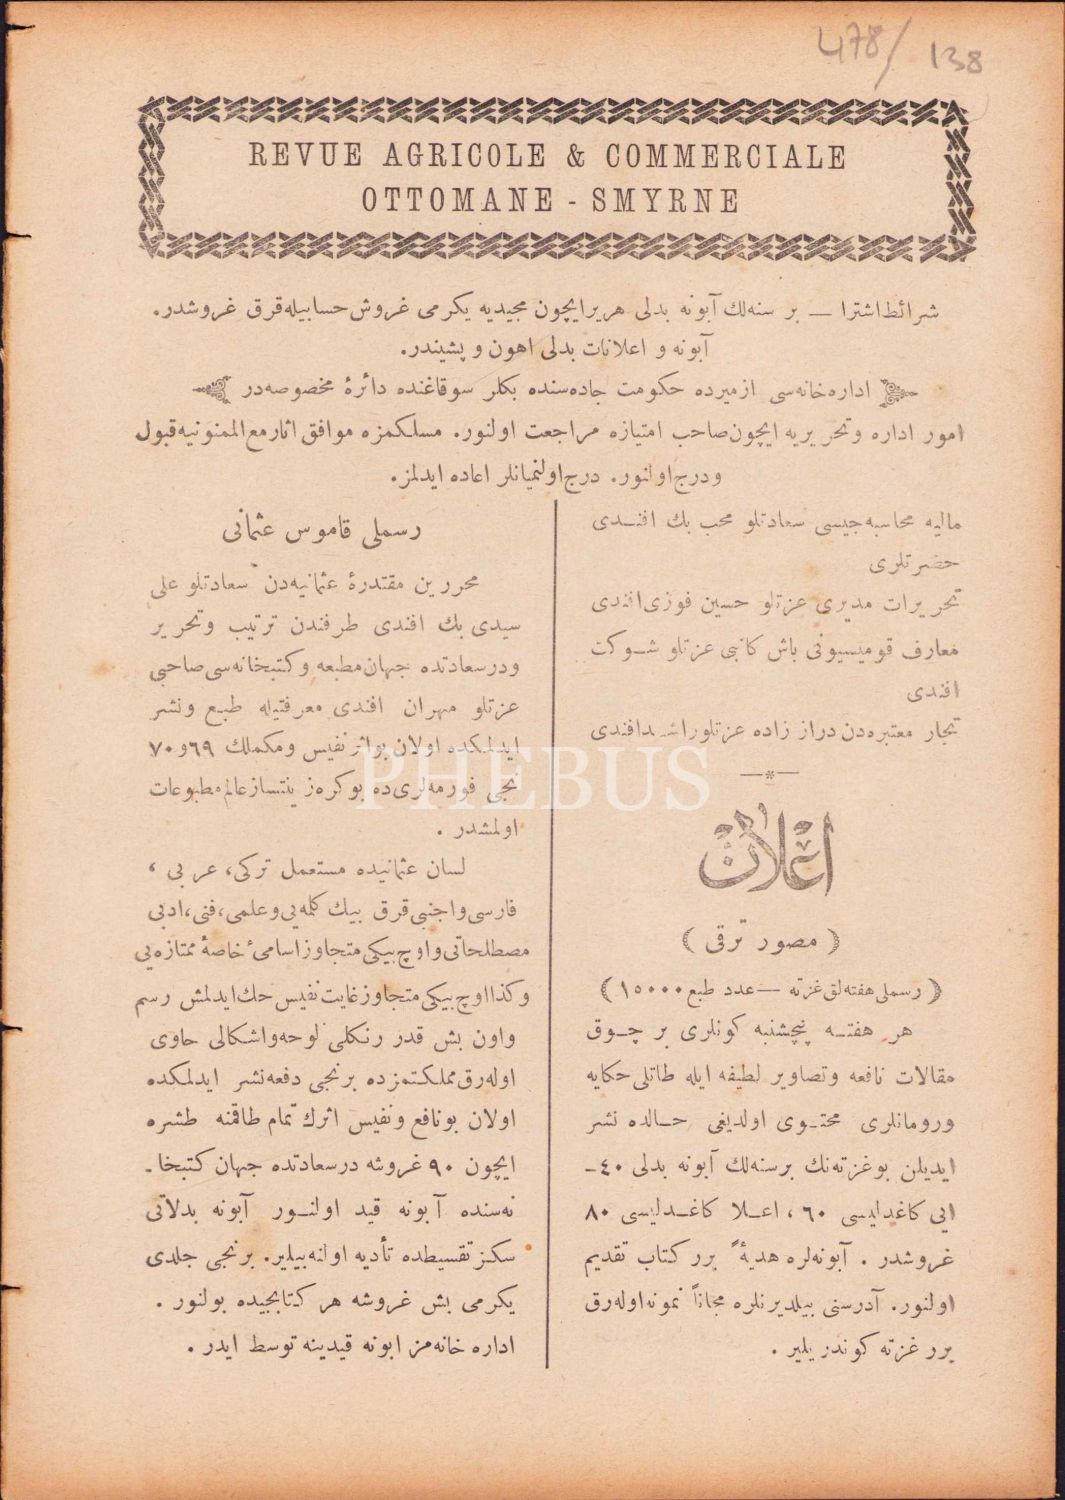 478/138
REVUE AGRICOLE & COMMERCIALE
OTTOMANE - SMYRNE
شرائط اشترا — بر سنه‌لك آبونه بدلی هر یر ایچون مجیدیه یكرمی غروش حسابیله قرق غروشدر.
آبونه و اعلانات بدلی اهون و پشیندر.
اداره‌خانه‌سی ازمیرده حكومت جاده‌سنده بكلر سوقاغنده دائرهٔ مخصوصه‌در
امور اداره و تحریریه ایچون صاحب امتیازه مراجعت اولنور. مسلكمزه موافق اثار مع الممنونیه قبول
و درج اولنور. درج اولنمیانلر اعاده ایدلمز.
مالیه محاسبه‌جیسی سعادتلو محب بك افنـدی
حضرتلری
تحریرات مدیری عزتلو حسین فوزی افندی
معارف قومیسیونی باش كاتبی عزتلو شـوكت
افندی
تجار معتبره‌دن دراز زاده عزتلو راشـد افندی
—*—
اعلان
( مصور ترقی )
( رسملی هفته‌لق غزته — عدد طبع ١٥٠٠٠ )
هر هفتـه پنچشنبه كونلری بر چـوق
مقالات نافعه و تصاویر لطیفه ایله طاتلی حكایه
و رومانلری محتـوی اولدیغی حـالده نشر
ایدیلن بو غزته‌نك بر سنه‌لك آبونه بدلی ٤٠ـ
ایی كاغدلیسی ٦٠ ، اعـلا كاغـدلیسی ٨٠
غروشدر . آبونه‌لره هدیةً برر كتاب تقدیم
اولنور. آدرسنی بیلدیرنلره مجاناً نمونه اوله‌رق
برر غزته كوندریلیر .
رسملی قاموس عثمانی
محررین مقتدرهٔ عثمانیه‌دن سعادتلو علی
سیدی بك افندی طرفندن ترتیب و تحریر
و درسعادتده جهان مطبعه و كتبخانه‌سی صاحبی
عزتلو مهران افندی معرفتیله طبع و نشر
ایدلمكده اولان بو اثر نفیس و مكملك ٦٩ و ٧٠
نجی فورمه‌لری ده بو كره زینتساز عالم مطبوعات
اولمشدر .
لسان عثمانیده مستعمل تركی، عربی ،
فارسی و اجنبی قرق بیك كلمه‌یی و علمی، فنی، ادبی
مصطلحاتی و اوچ بیكی متجاوز اسامیٔ خاصهٔ ممتازه‌یی
و كذا اوچ بیكی متجاوز غایت نفیس حك ایدلمش رسم
و اون بش قدر رنكلی لوحه و اشكالی حاوی
اوله‌رق مملكتمزده برنجی دفعه نشر ایدلمكده
اولان بو نافع و نفیس اثرك تمام طاقمنه طشره
ایچون ٩٠ غروشه درسعادتده جهان كتبخا-
نه‌سنده آبونه قید اولنـور آبونه بدلاتی
سكز تقسیطده تأدیه اولنه‌بیلیر. برنجی جلدی
یكرمی بش غروشه هر كتابجیده بولنور .
اداره خانه‌مز ابونه قیدینه توسط ایدر .
PHEBUS